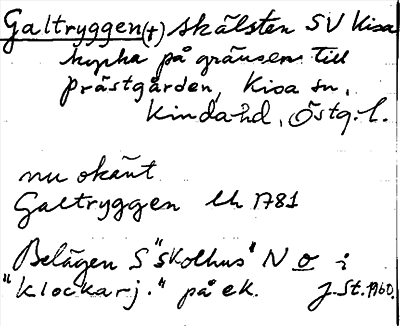 Galtryggen (+) skälsten SV Kisa
kyrka på gränsen till
prästgården, Kisa sn,
Kinda hd, Östg. l.
nu okänt
Galtryggen lh 1781
Belägen S "skolhus" N o i
"klockarj." på ek. J. St. 1960.